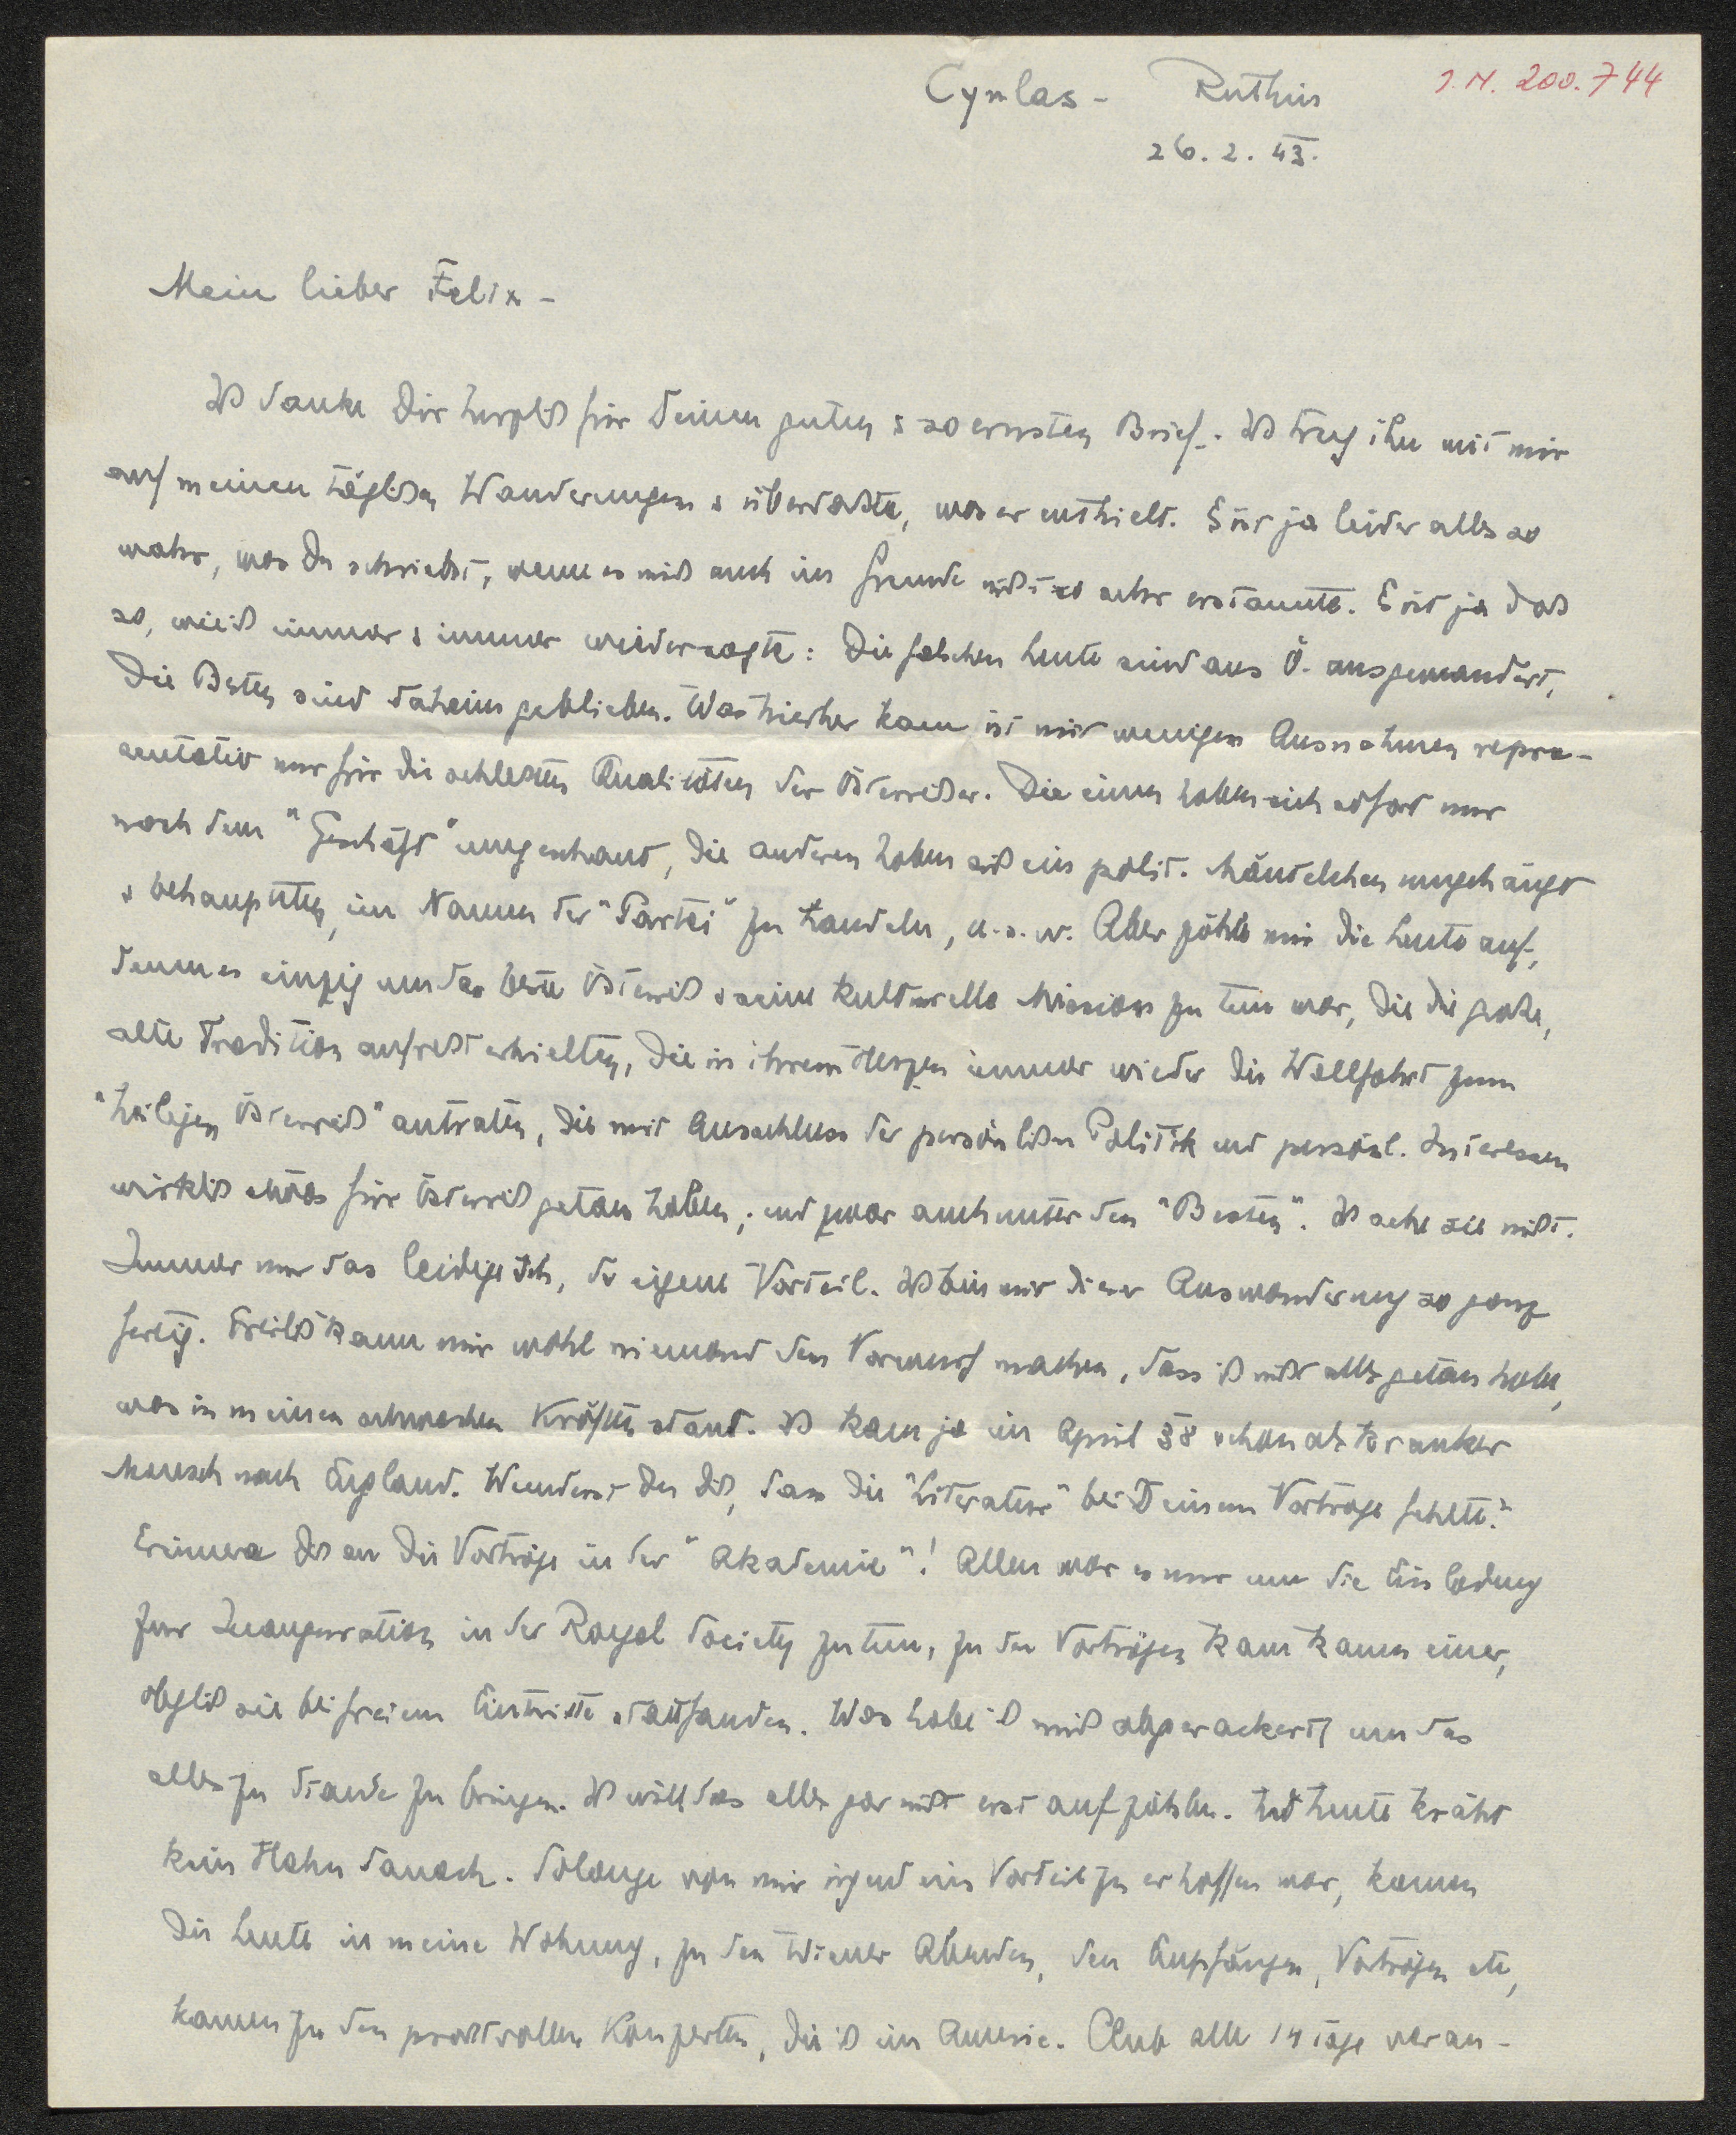 Cynlas - Ruthin
J.N. 200.744
26.2.43.
Mein lieber Felix -
Ich danke Dir herzlich für Deinen guten & so ernsten Brief. Ich trug ihn mit mir
auf meinen täglichen Wanderungen & überdachte, was er enthielt. Es ist ja leider alles so
wahr, was Du schriebst, wenn es mich auch im Grunde nicht so sehr erstaunte. Es ist ja doch
so, wie ich immer & immer wieder sagte: Die falschen Leute sind aus Ö. ausgewandert,
Die Besten sind daheim geblieben. Was hierher kam ist mit wenigen Ausnahmen reprae-
sentativ nur für die schlechten Qualitäten der Österreicher. Die einen haben sich sofort nur
nach dem "Geschäft" umgeschaut, die anderen haben sich ein polit. Mäntelchen umgehängt
& behaupteten, im Namen der "Partei" zu handeln, u.s.w. Aber zähle mir die Leute auf,
denen es einzig um das beste Österreich & seine kulturelle Mission zu tun war, die die große,
alte Tradition aufrecht erhielten, die in ihrem Herzen immer wieder die Wallfahrt zum
"heiligen Österreich" antraten, die mit Ausschluss der persönlichen Politik und persönl. Interessen
wirklich etwas für Österreich getan haben, und zwar auch unter den "Besten". Ich sehe sie nicht.
Immer nur das leidige Ich, der eigene Vorteil. Ich bin mit dieser Auswanderung so ganz
fertig. Freilich kann mir wohl niemand den Vorwurf machen, dass ich nicht alles getan habe,
was in meinen schwachen Kräften stand. Ich kam ja im April 38 schon als kranker
Mensch nach England. Wunderst Du Dich, dass die "Literatur" bei Deinem Vortrage fehlte?
Erinnere Dich an die Vorträge in der "Akademie"! Allen war es nur um die Einladung
zur Inauguration in der Royal Society zu tun, zu den Vorträgen kam kaum einer,
obgleich sie bei freiem Eintritte stattfanden. Was habe ich mich abgerackert, um das
alles zu Stande zu bringen. Ich will das alles gar nicht erst aufzählen. Und heute kräht
kein Hahn danach. Solange von mir irgend ein Vorteil zu erhoffen war, kamen
die Leute in meine Wohnung, zu den Wiener Abenden, den Empfängen, Vorträgen etc,
kamen zu den prachtvollen Konzerten, die ich im Americ. Club alle 14 Tage veran-